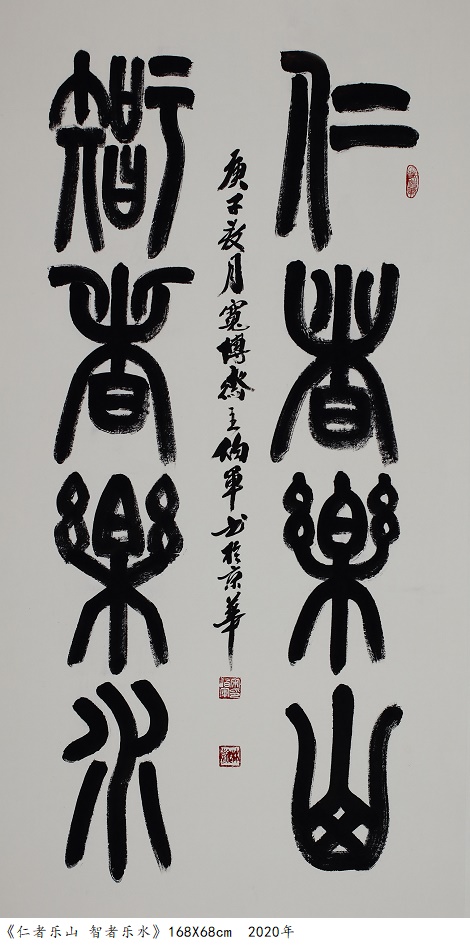 仁者樂山
庚子夏月寬博齋主伯軍书於京華
智者樂水
《仁者乐山 智者乐水》168X68cm 2020年